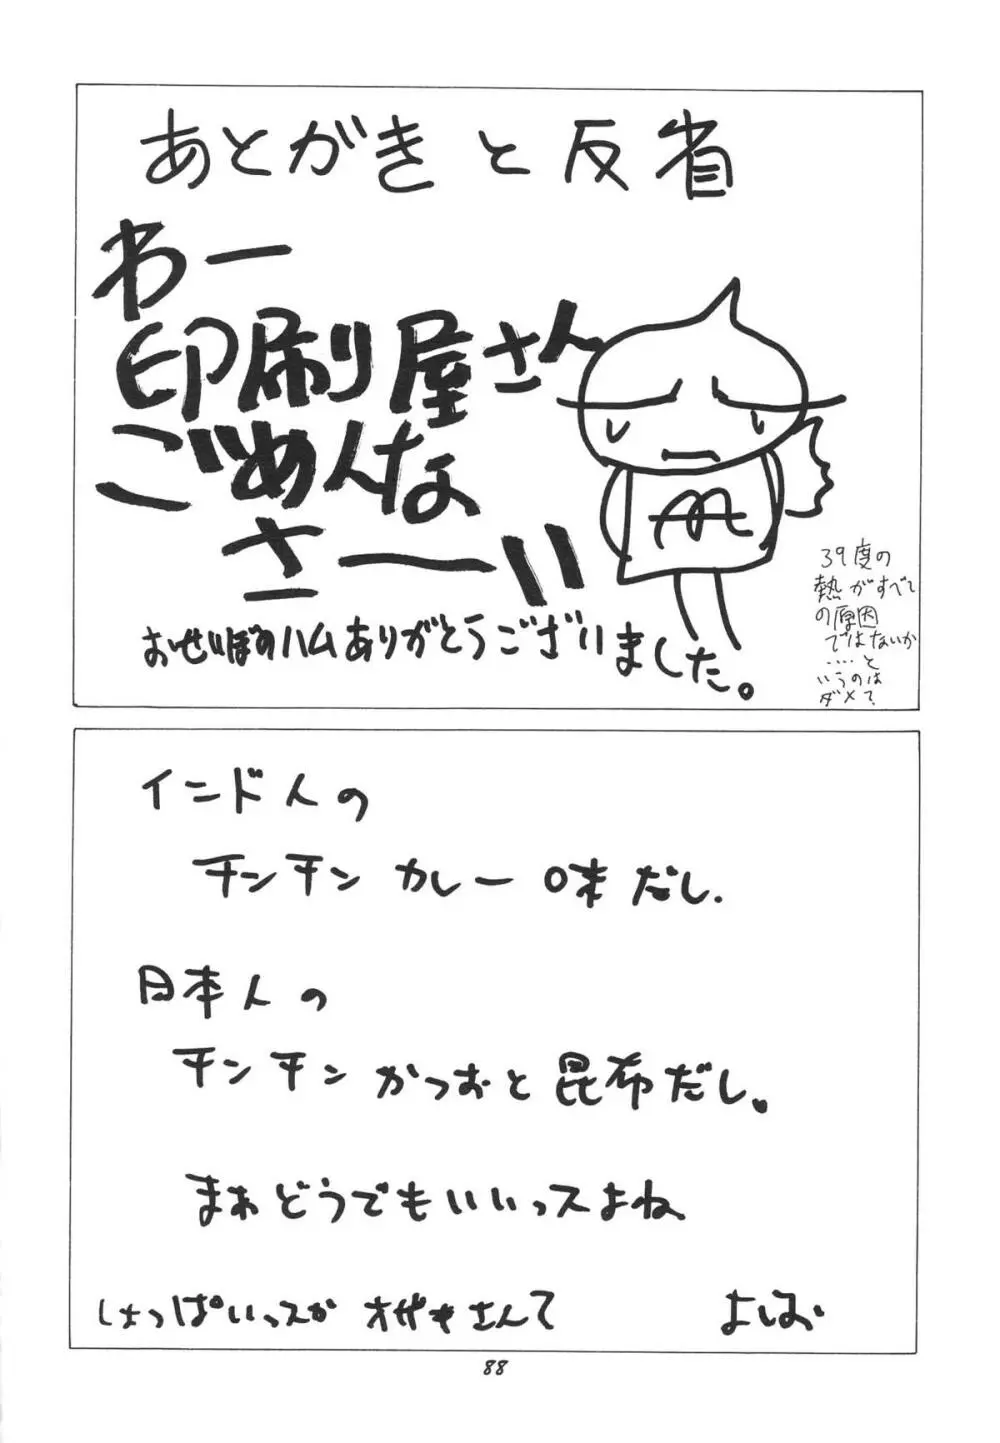 あとがきと反省
わー
印刷屋さん
ごめんな
さーい
おせいぼのハムありがとうございました。
39度の
熱がすべて
の原因
ではないか
‥‥と
いうのは
ダメ?
インド人の
チンチン カレー味だし.
日本人の
チンチン かつおと昆布だし。
まあどうでもいいっスよね
しょっぱいっスか オザキさんて
よしお
88